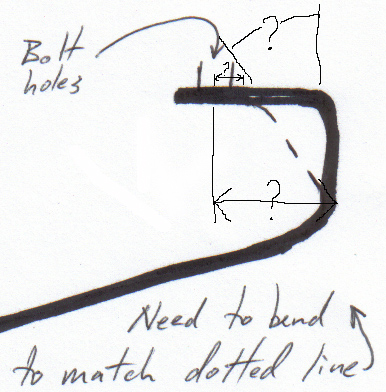 ?
Bolt
holes
?
?
Need to bend
to match dotted line